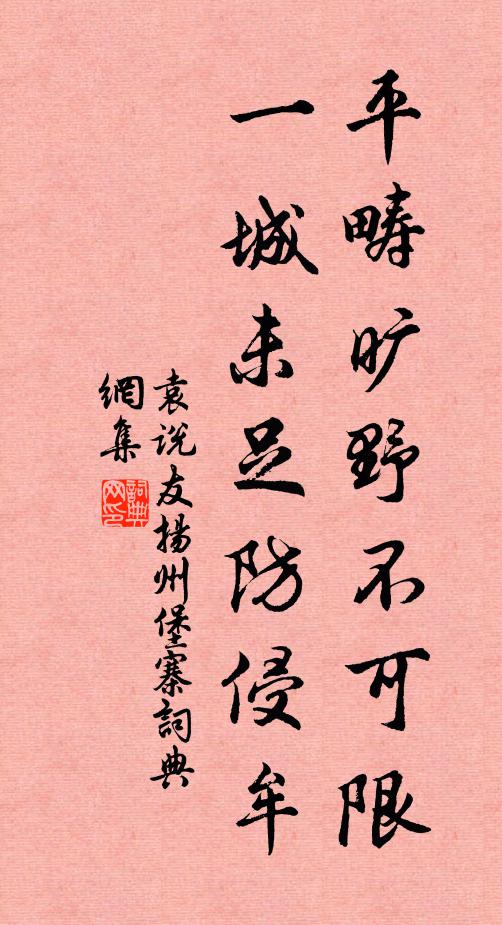 平疇旷野不可限
一城未足防侵牟
袁说友揚州堡寨詞典
網集
詞典
网印